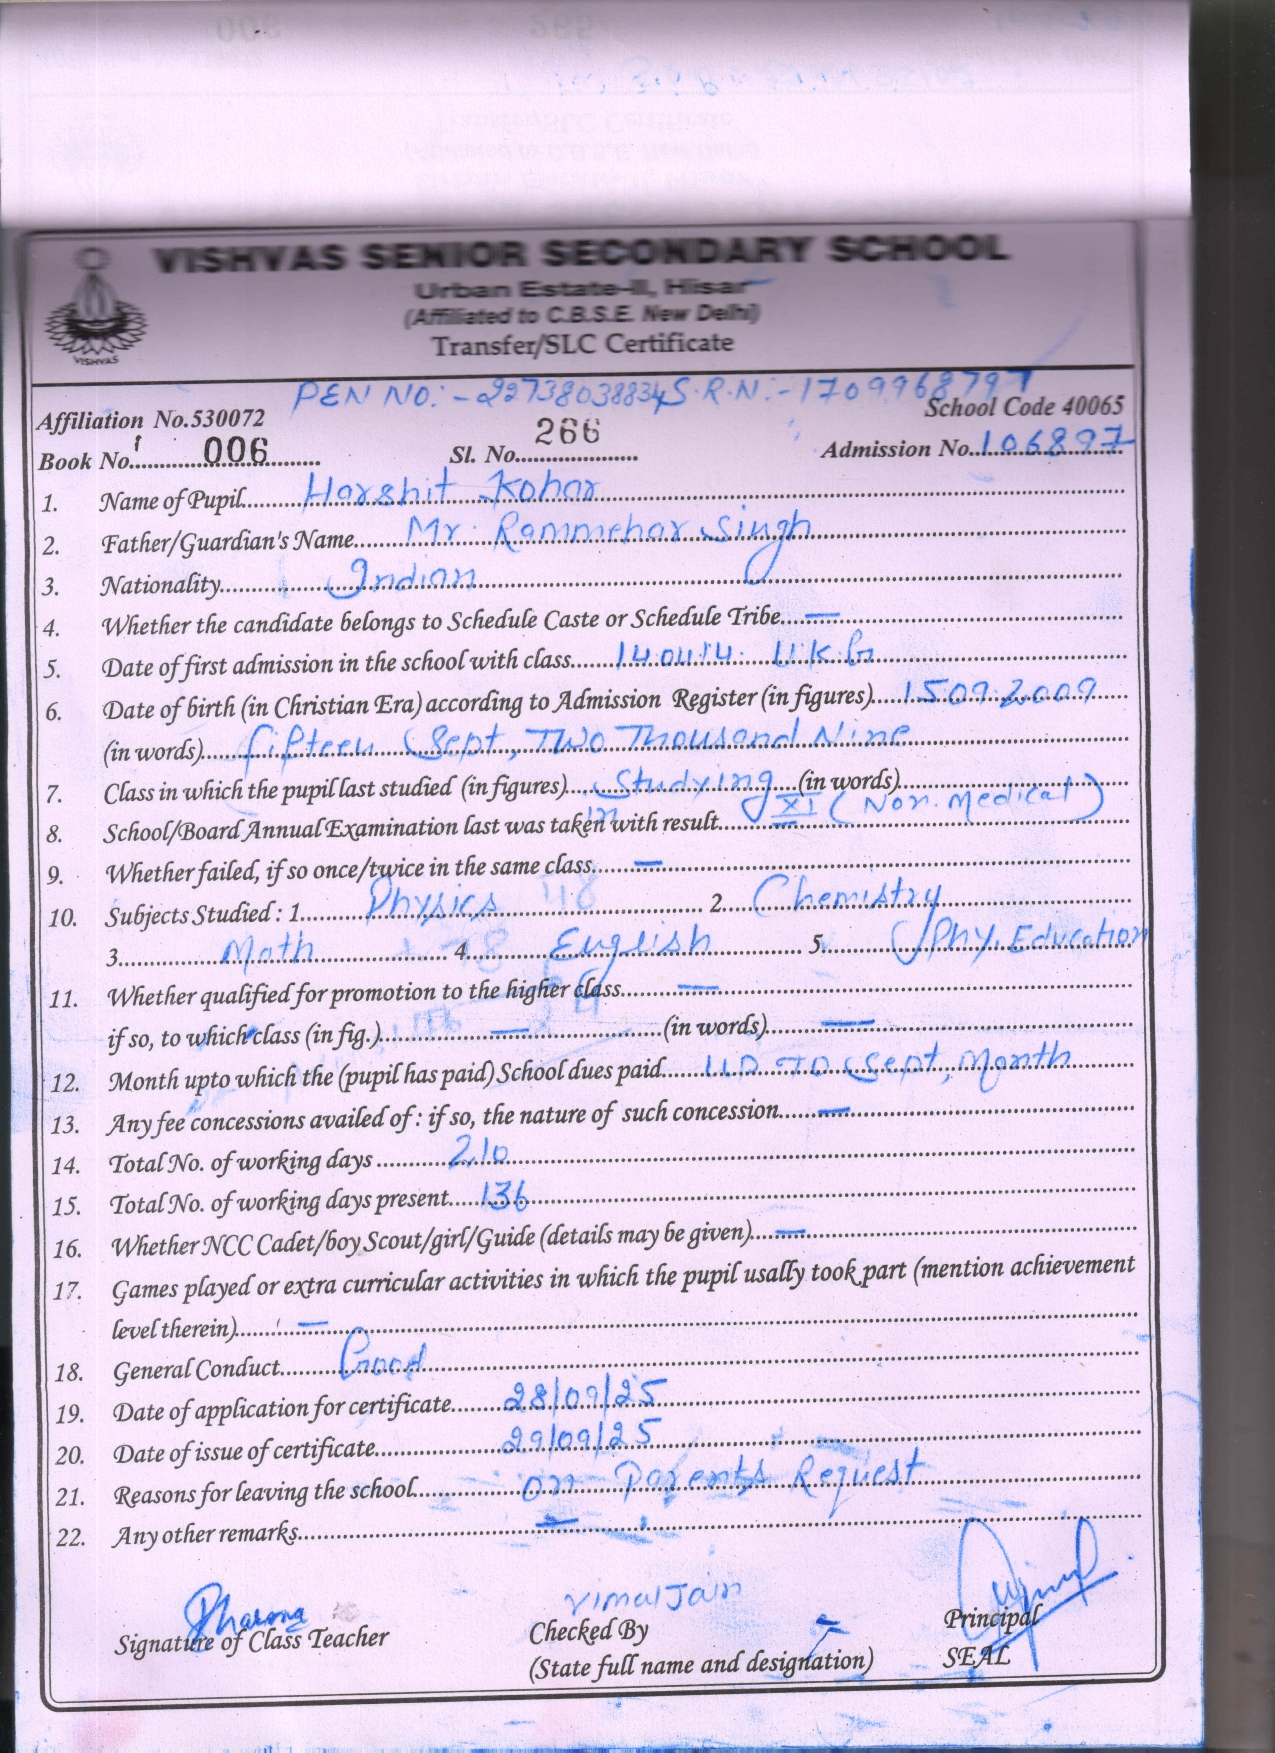 VISHVAS SENIOR SECONDARY SCHOOL
Urban Estate-II, Hisar
(Affiliated to C.B.S.E. New Delhi)
VISHVAS
Transfer/SLC Certificate
PEN NO:-22738038834 S.R.N:-1709968797
Affiliation No.530072 School Code 40065
Book No. 006 Sl. No. 266 Admission No. 106897
1. Name of Pupil Harshit Kohar
2. Father/Guardian's Name Mr. Rammehar Singh
3. Nationality Indian
4. Whether the candidate belongs to Schedule Caste or Schedule Tribe —
5. Date of first admission in the school with class 14.04.14. U.K.G
6. Date of birth (in Christian Era) according to Admission Register (in figures) 15.09.2009
(in words) fifteen Sept, Two Thousand Nine
7. Class in which the pupil last studied (in figures) Studying (in words)
in XI (Non. Medical)
8. School/Board Annual Examination last was taken with result
9. Whether failed, if so once/twice in the same class —
10. Subjects Studied : 1. Physics 2. Chemistry
3. Math 4. English 5. Phy. Education
11. Whether qualified for promotion to the higher class —
if so, to which class (in fig.) — (in words) —
12. Month upto which the (pupil has paid) School dues paid UP TO Sept, Month
13. Any fee concessions availed of : if so, the nature of such concession —
14. Total No. of working days 210
15. Total No. of working days present 136
16. Whether NCC Cadet/boy Scout/girl/Guide (details may be given) —
17. Games played or extra curricular activities in which the pupil usally took part (mention achievement
level therein) —
18. General Conduct Good
19. Date of application for certificate 28/09/25
20. Date of issue of certificate 29/09/25
21. Reasons for leaving the school on Parents Request
22. Any other remarks —
Vimal Jain
Signature of Class Teacher Checked By Principal
(State full name and designation) SEAL